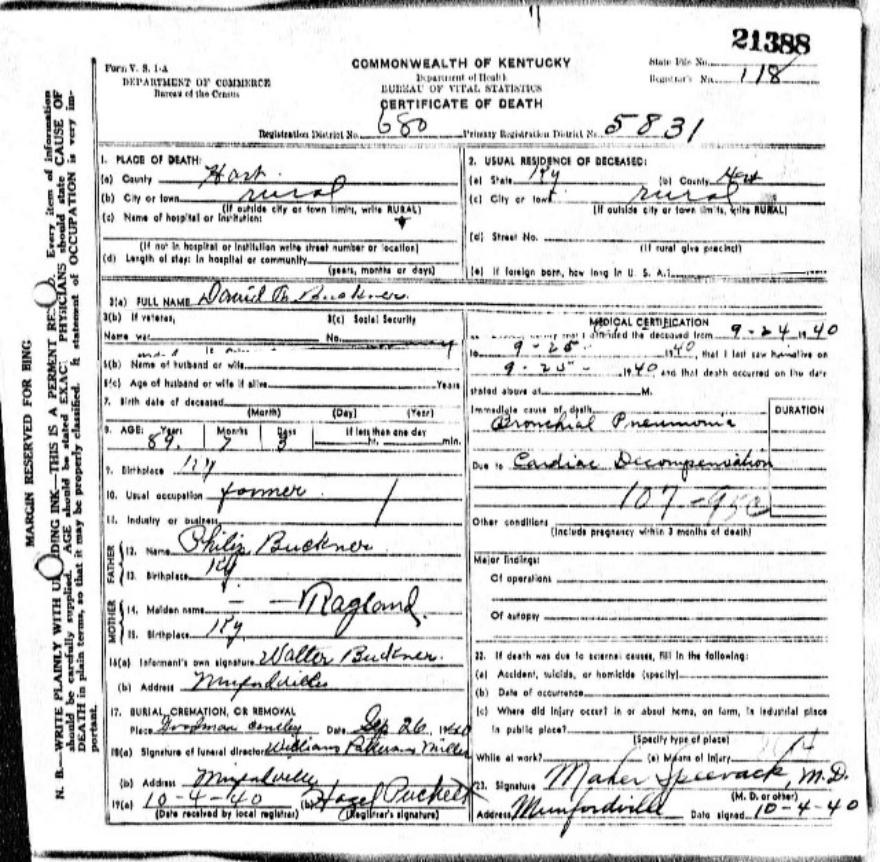 21388
Form V. S. 1-A
DEPARTMENT OF COMMERCE
Bureau of the Census
COMMONWEALTH OF KENTUCKY
Department of Health
BUREAU OF VITAL STATISTICS
CERTIFICATE OF DEATH
State File No.
Registrar's No. 118
Registration District No. 680 Primary Registration District No. 5831
MARGIN RESERVED FOR BING
N. B.—WRITE PLAINLY WITH U DING INK—THIS IS A PERMENT RE Every item of information
should be carefully supplied. AGE should be stated EXAC PHYSICIANS should state CAUSE OF
DEATH in plain terms, so that it may be properly classified. statement of OCCUPATION is very im-
portant.
1. PLACE OF DEATH:
(a) County Hart
(b) City or town rural
(If outside city or town limits, write RURAL)
(c) Name of hospital or institution:
(If not in hospital or institution write street number or location)
(d) Length of stay: In hospital or community
(years, months or days)
2. USUAL RESIDENCE OF DECEASED:
(a) State Ky (b) County Hart
(c) City or town rural
(If outside city or town limits, write RURAL)
(d) Street No.
(If rural give precinct)
(e) If foreign born, how long in U. S. A.?
3(a) FULL NAME David Buckner
3(b) If veteran, 3(c) Social Security
Name war No.
6(b) Name of husband or wife
6(c) Age of husband or wife if alive Years
7. Birth date of deceased
(Month) (Day) (Year)
8. AGE: Years Months Days If less than one day
89 7 hr. min.
9. Birthplace Ky
10. Usual occupation farmer
11. Industry or business
FATHER
12. Name Philip Buckner
13. Birthplace Ky
MOTHER
14. Maiden name - - Ragland
15. Birthplace Ky
16(a) Informant's own signature Walter Buckner
(b) Address Munfordville
17. BURIAL, CREMATION, OR REMOVAL
Place Date Sep 26, 1940
18(a) Signature of funeral director
(b) Address Munfordville
19(a) 10-4-40 (b) Hazel Puckett
(Date received by local registrar) (Registrar's signature)
MEDICAL CERTIFICATION
attended the deceased from 9-24 1940
to 9-25 1940, that I last saw him alive on
9-25- 1940, and that death occurred on the date
stated above at M.
Immediate cause of death DURATION
Bronchial Pneumonia
Due to Cardiac Decompensation
107
Other conditions
(Include pregnancy within 3 months of death)
Major findings:
Of operations
Of autopsy
22. If death was due to external causes, fill in the following:
(a) Accident, suicide, or homicide (specify)
(b) Date of occurrence
(c) Where did injury occur? in or about home, on farm, in industrial place
in public place?
(Specify type of place)
While at work? (e) Means of Injury
23. Signature Maher Speevack, M.D.
(M. D. or other)
Address Munfordville Date signed 10-4-40